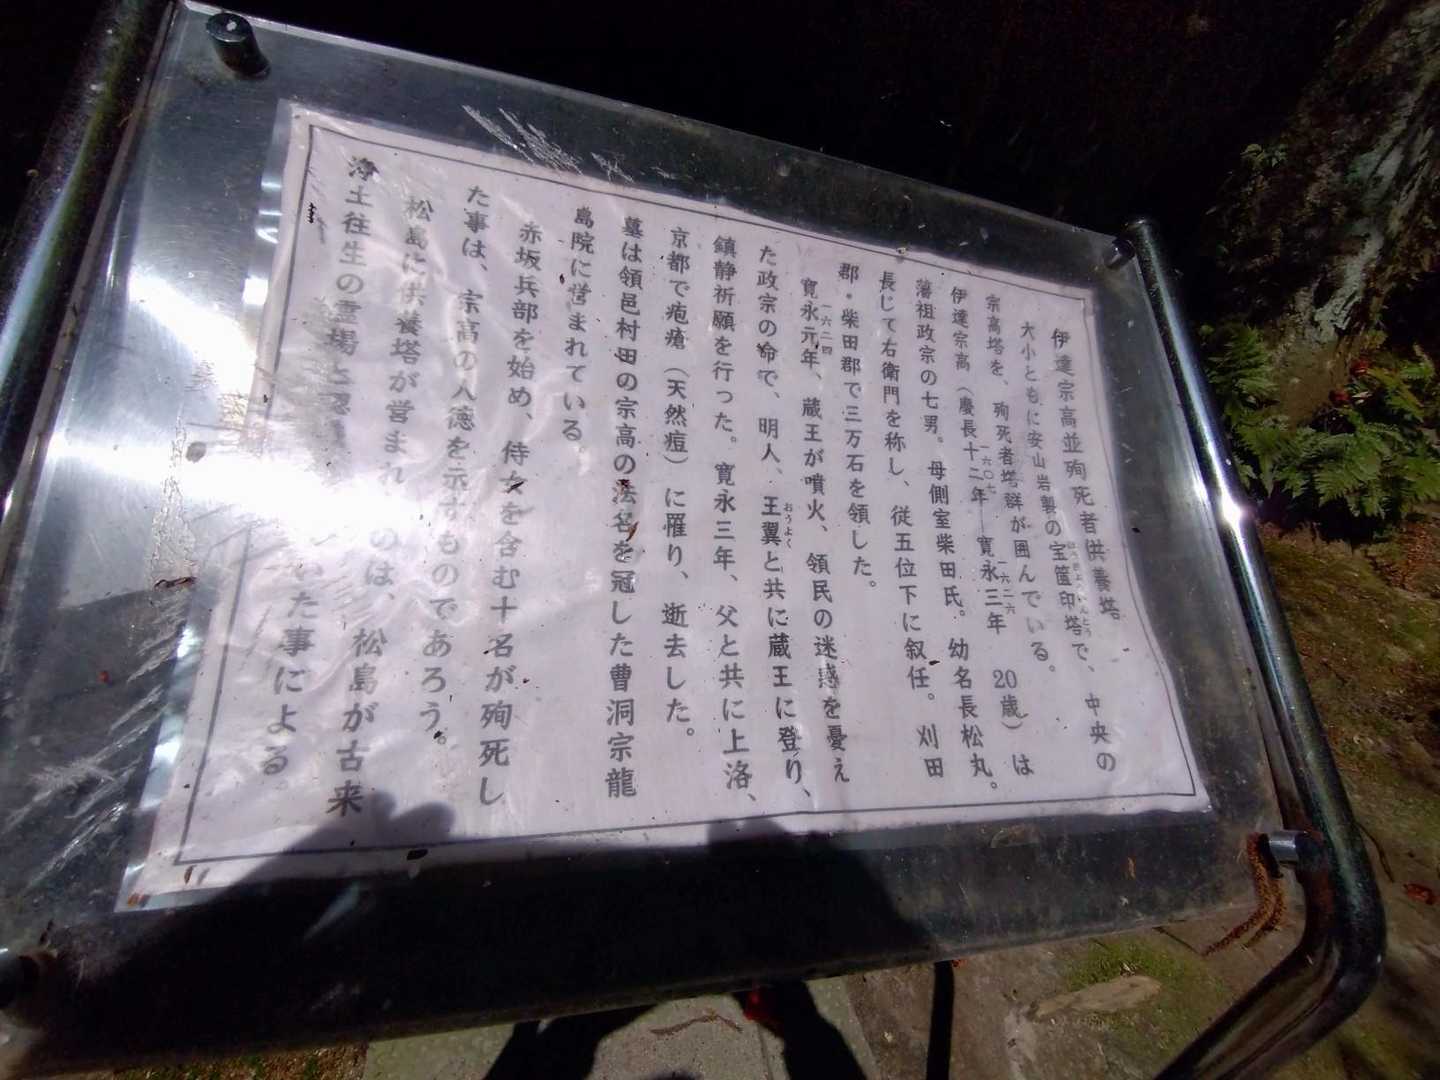 伊達宗高並殉死者供養塔
大小ともに安山岩製の宝篋印塔で、中央の
ほうきょういんとう
宗高塔を、殉死者塔群が囲んでいる。
伊達宗高（慶長十二年―寛永三年　20歳）は
一六〇七　一六二六
藩祖政宗の七男。母側室柴田氏。幼名長松丸。
長じて右衛門を称し、従五位下に叙任。刈田
郡・柴田郡で三万石を領した。
寛永元年、蔵王が噴火、領民の迷惑を憂え
一六二四
た政宗の命で、明人、王翼と共に蔵王に登り、
おうよく
鎮静祈願を行った。寛永三年、父と共に上洛、
京都で疱瘡（天然痘）に罹り、逝去した。
墓は領邑村田の宗高の法名を冠した曹洞宗龍
島院に営まれている。
赤坂兵部を始め、侍女を含む十名が殉死し
た事は、宗高の人徳を示すものであろう。
松島に供養塔が営まれ のは、松島が古来
浄土往生の霊場と認 た事による